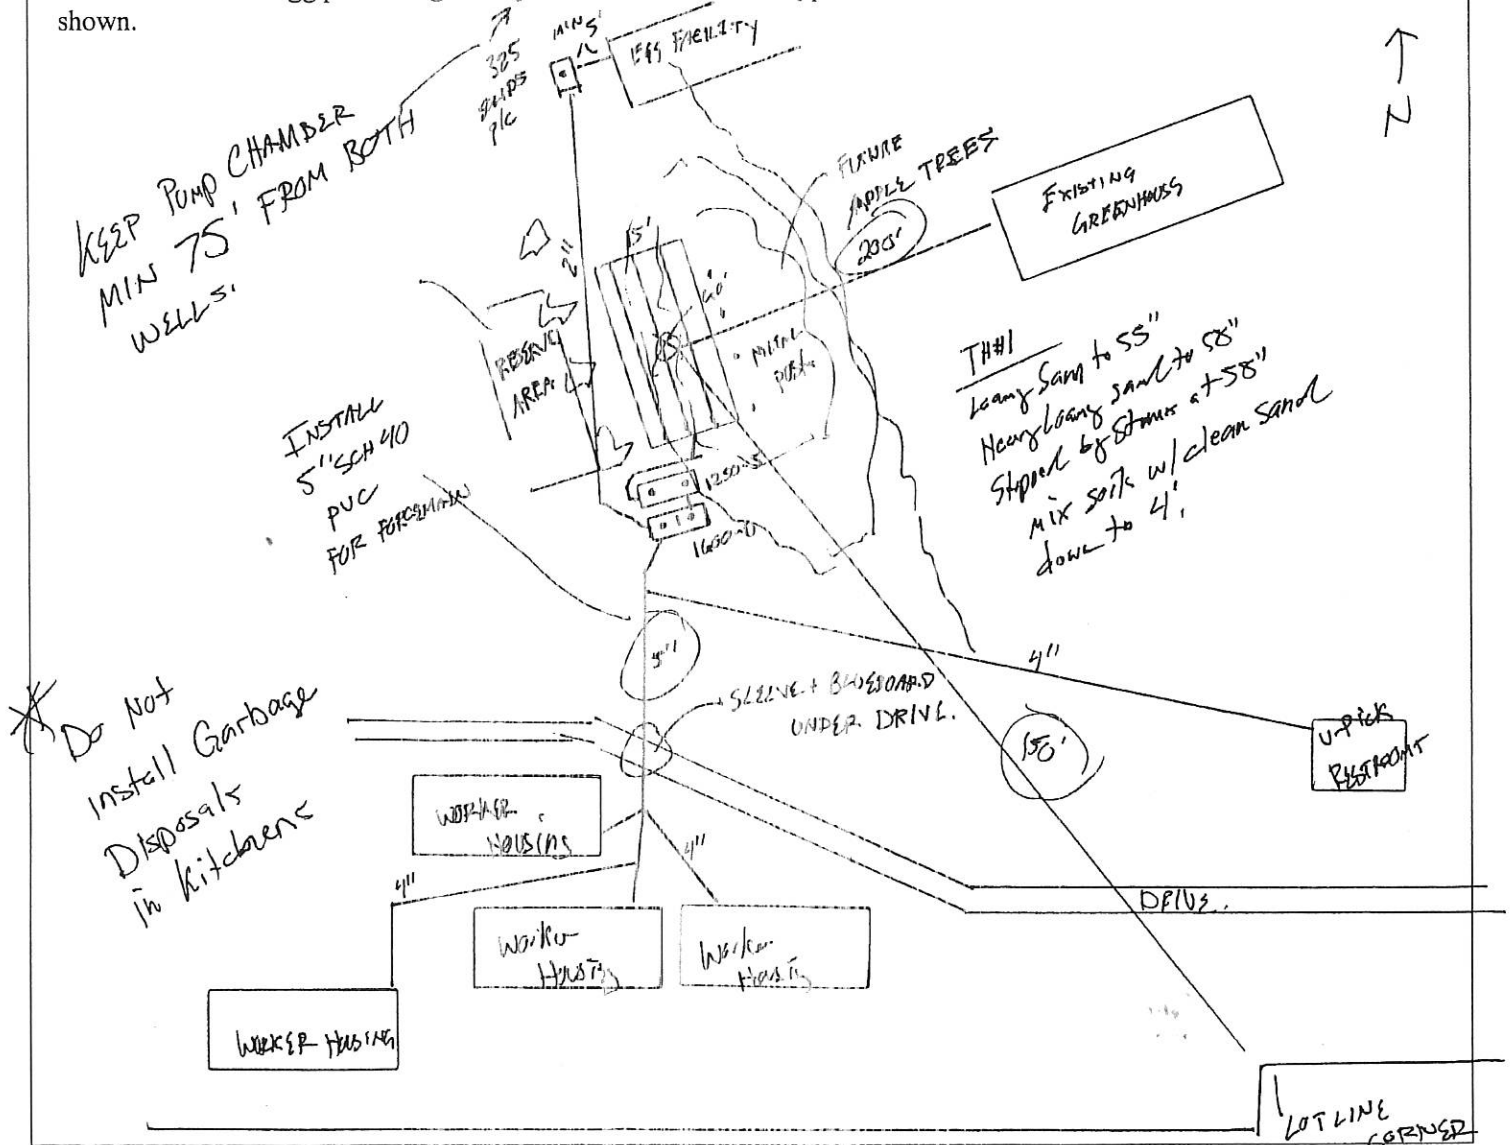 shown.
MIN 5'
EGG FACILITY
325
GALLDS
P/C
N
KEEP PUMP CHAMBER
MIN 75' FROM BOTH
WELLS.
FUTURE
APPLE TREES
200'
EXISTING
GREENHOUSE
15'
2"
60'
RESERVE
AREA.
TH#1
Loamy Sand to 55"
Heavy Loamy sand to 58"
Stopped by Stones at 58"
mix soils w/ clean sand
down to 4'.
INSTALL
5" SCH 40
PVC
FOR FORCEMAIN
1250-S
1600-0
5"
4"
SLEEVE + BLUEBOARD
UNDER DRIVE.
150'
U-PICK
RESTROOM
* Do Not
install Garbage
Disposals
in Kitchens
WORKER
HOUSING
4"
4"
DRIVE.
Worker
Housing
Worker
Housing
WORKER HOUSING
LOT LINE
CORNER